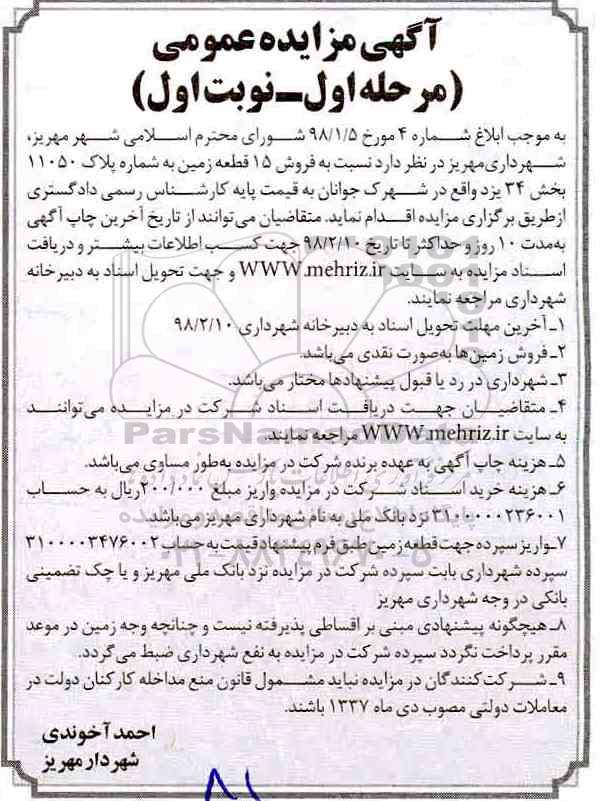 آگهی مزایده عمومی
(مرحله اول ـ نوبت اول)
به موجب ابلاغ شماره ۴ مورخ ۹۸/۱/۵ شورای محترم اسلامی شهر مهریز،
شهرداری مهریز در نظر دارد نسبت به فروش ۱۵ قطعه زمین به شماره پلاک ۱۱۰۵۰
بخش ۳۴ یزد واقع در شهرک جوانان به قیمت پایه کارشناس رسمی دادگستری
ازطریق برگزاری مزایده اقدام نماید. متقاضیان می‌توانند از تاریخ آخرین چاپ آگهی
به‌مدت ۱۰ روز و حداکثر تا تاریخ ۹۸/۲/۱۰ جهت کسب اطلاعات بیشتر و دریافت
اسناد مزایده به سایت WWW.mehriz.ir و جهت تحویل اسناد به دبیرخانه
شهرداری مراجعه نمایند.
۱ـ آخرین مهلت تحویل اسناد به دبیرخانه شهرداری ۹۸/۲/۱۰
۲ـ فروش زمین‌ها به‌صورت نقدی می‌باشد.
۳ـ شهرداری در رد یا قبول پیشنهادها مختار می‌باشد.
۴ـ متقاضیان جهت دریافت اسناد شرکت در مزایده می‌توانند
به سایت WWW.mehriz.ir مراجعه نمایند.
۵ـ هزینه چاپ آگهی به عهده برنده شرکت در مزایده به‌طور مساوی می‌باشد.
۶ـ هزینه خرید اسناد شرکت در مزایده واریز مبلغ ۲۰۰/۰۰۰ریال به حساب
نزد بانک ملی به نام شهرداری مهریز می‌باشد.
۷ـ واریز سپرده جهت قطعه زمین طبق فرم پیشنهاد قیمت به حساب ۳۱۰۰۰۰۳۴۷۶۰۰۲
سپرده شهرداری بابت سپرده شرکت در مزایده نزد بانک ملی مهریز و یا چک تضمینی
بانکی در وجه شهرداری مهریز
۸ـ هیچگونه پیشنهادی مبنی بر اقساطی پذیرفته نیست و چنانچه وجه زمین در موعد
مقرر پرداخت نگردد سپرده شرکت در مزایده به نفع شهرداری ضبط می‌گردد.
۹ـ شرکت‌کنندگان در مزایده نباید مشمول قانون منع مداخله کارکنان دولت در
معاملات دولتی مصوب دی ماه ۱۳۳۷ باشند.
احمد آخوندی
شهردار مهریز
۸۱